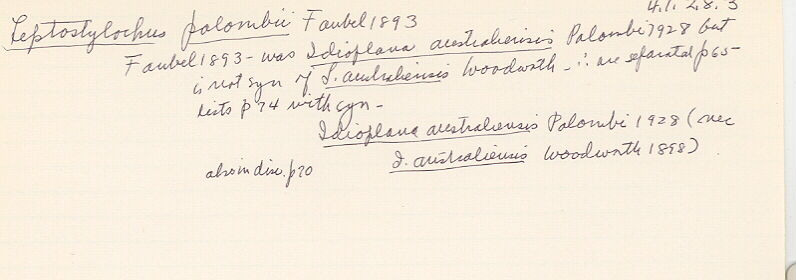 4.1.2.8.3
Leptostylochus palombii Faubel 1893
Faubel 1893 - was Idioplana australiensis Palombi 1928 but
is not syn of I. australiensis Woodworth - ∴ are separated p65 -
lists p 74 with syn -
Idioplana australiensis Palombi 1928 (nec
I. australiensis Woodworth 1898)
also in disc. p70